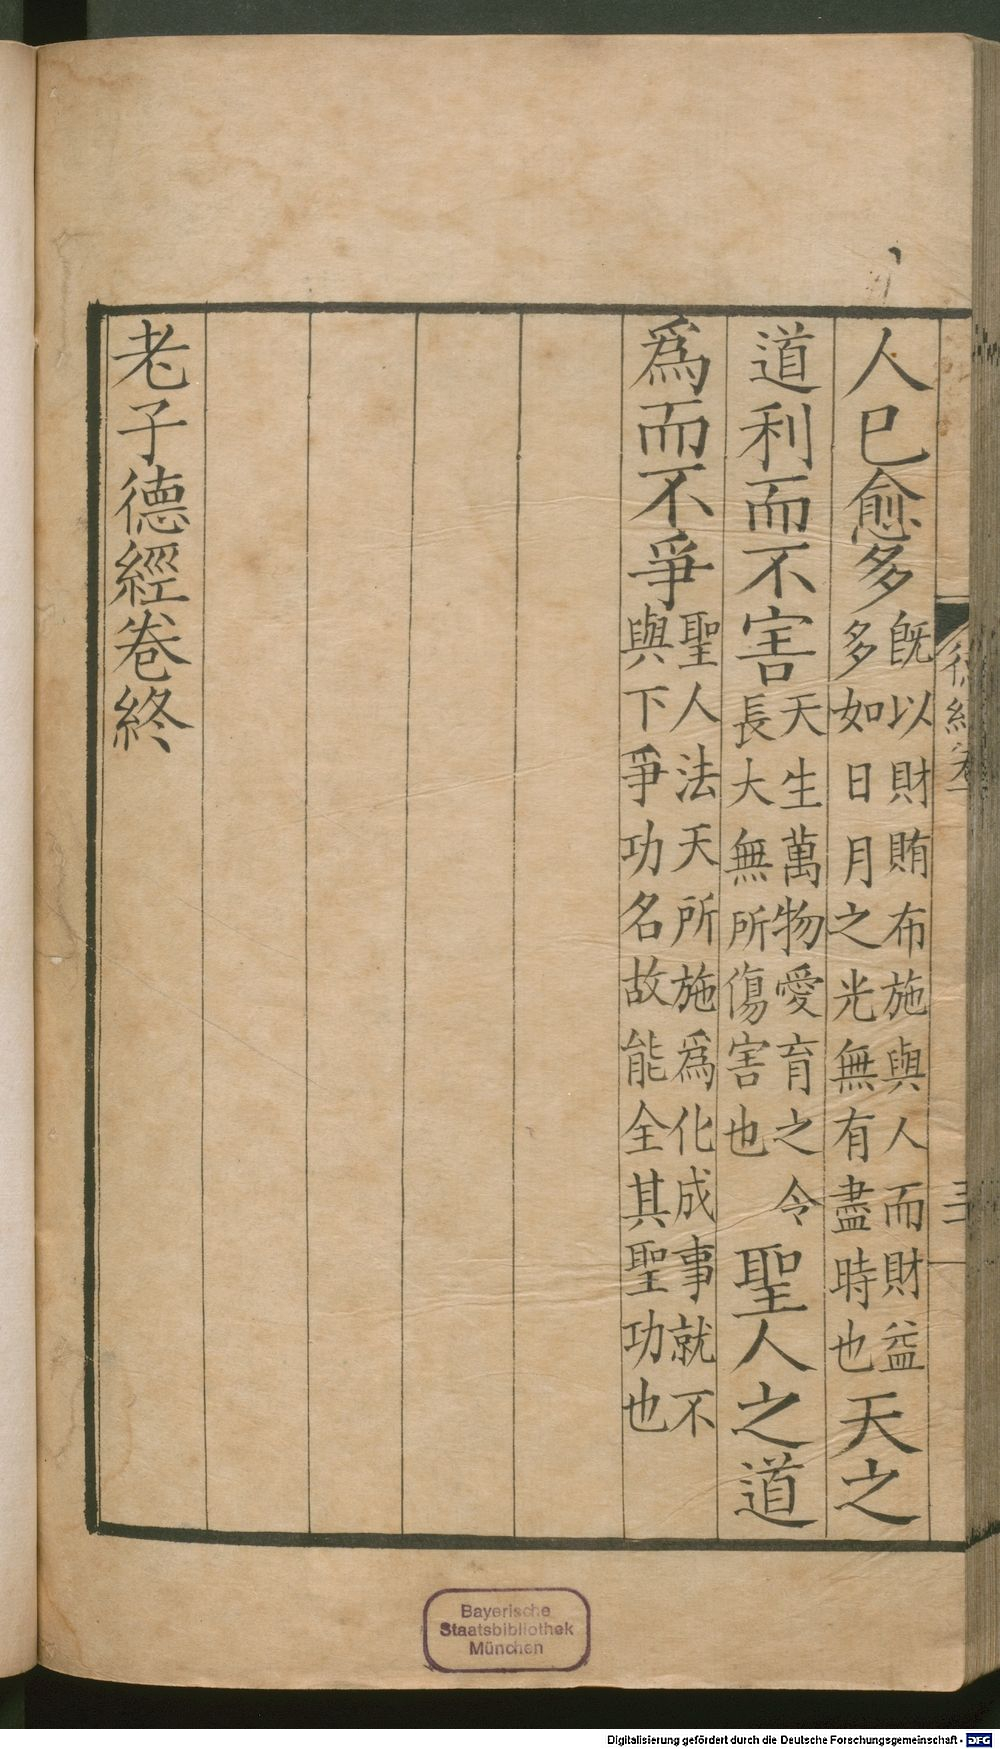 人巳愈多既以財賄布施與人而財益多如日月之光無有盡時也天之
道利而不害天生萬物愛育之令長大無所傷害也聖人之道
爲而不爭聖人法天所施爲化成事就不與下爭功名故能全其聖功也
老子德經卷終
德經卷
Bayerische
Staatsbibliothek
München
Digitalisierung gefördert durch die Deutsche Forschungsgemeinschaft - DFG